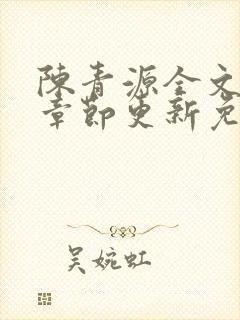 陳青源全文
章節更新免
吴婉虹